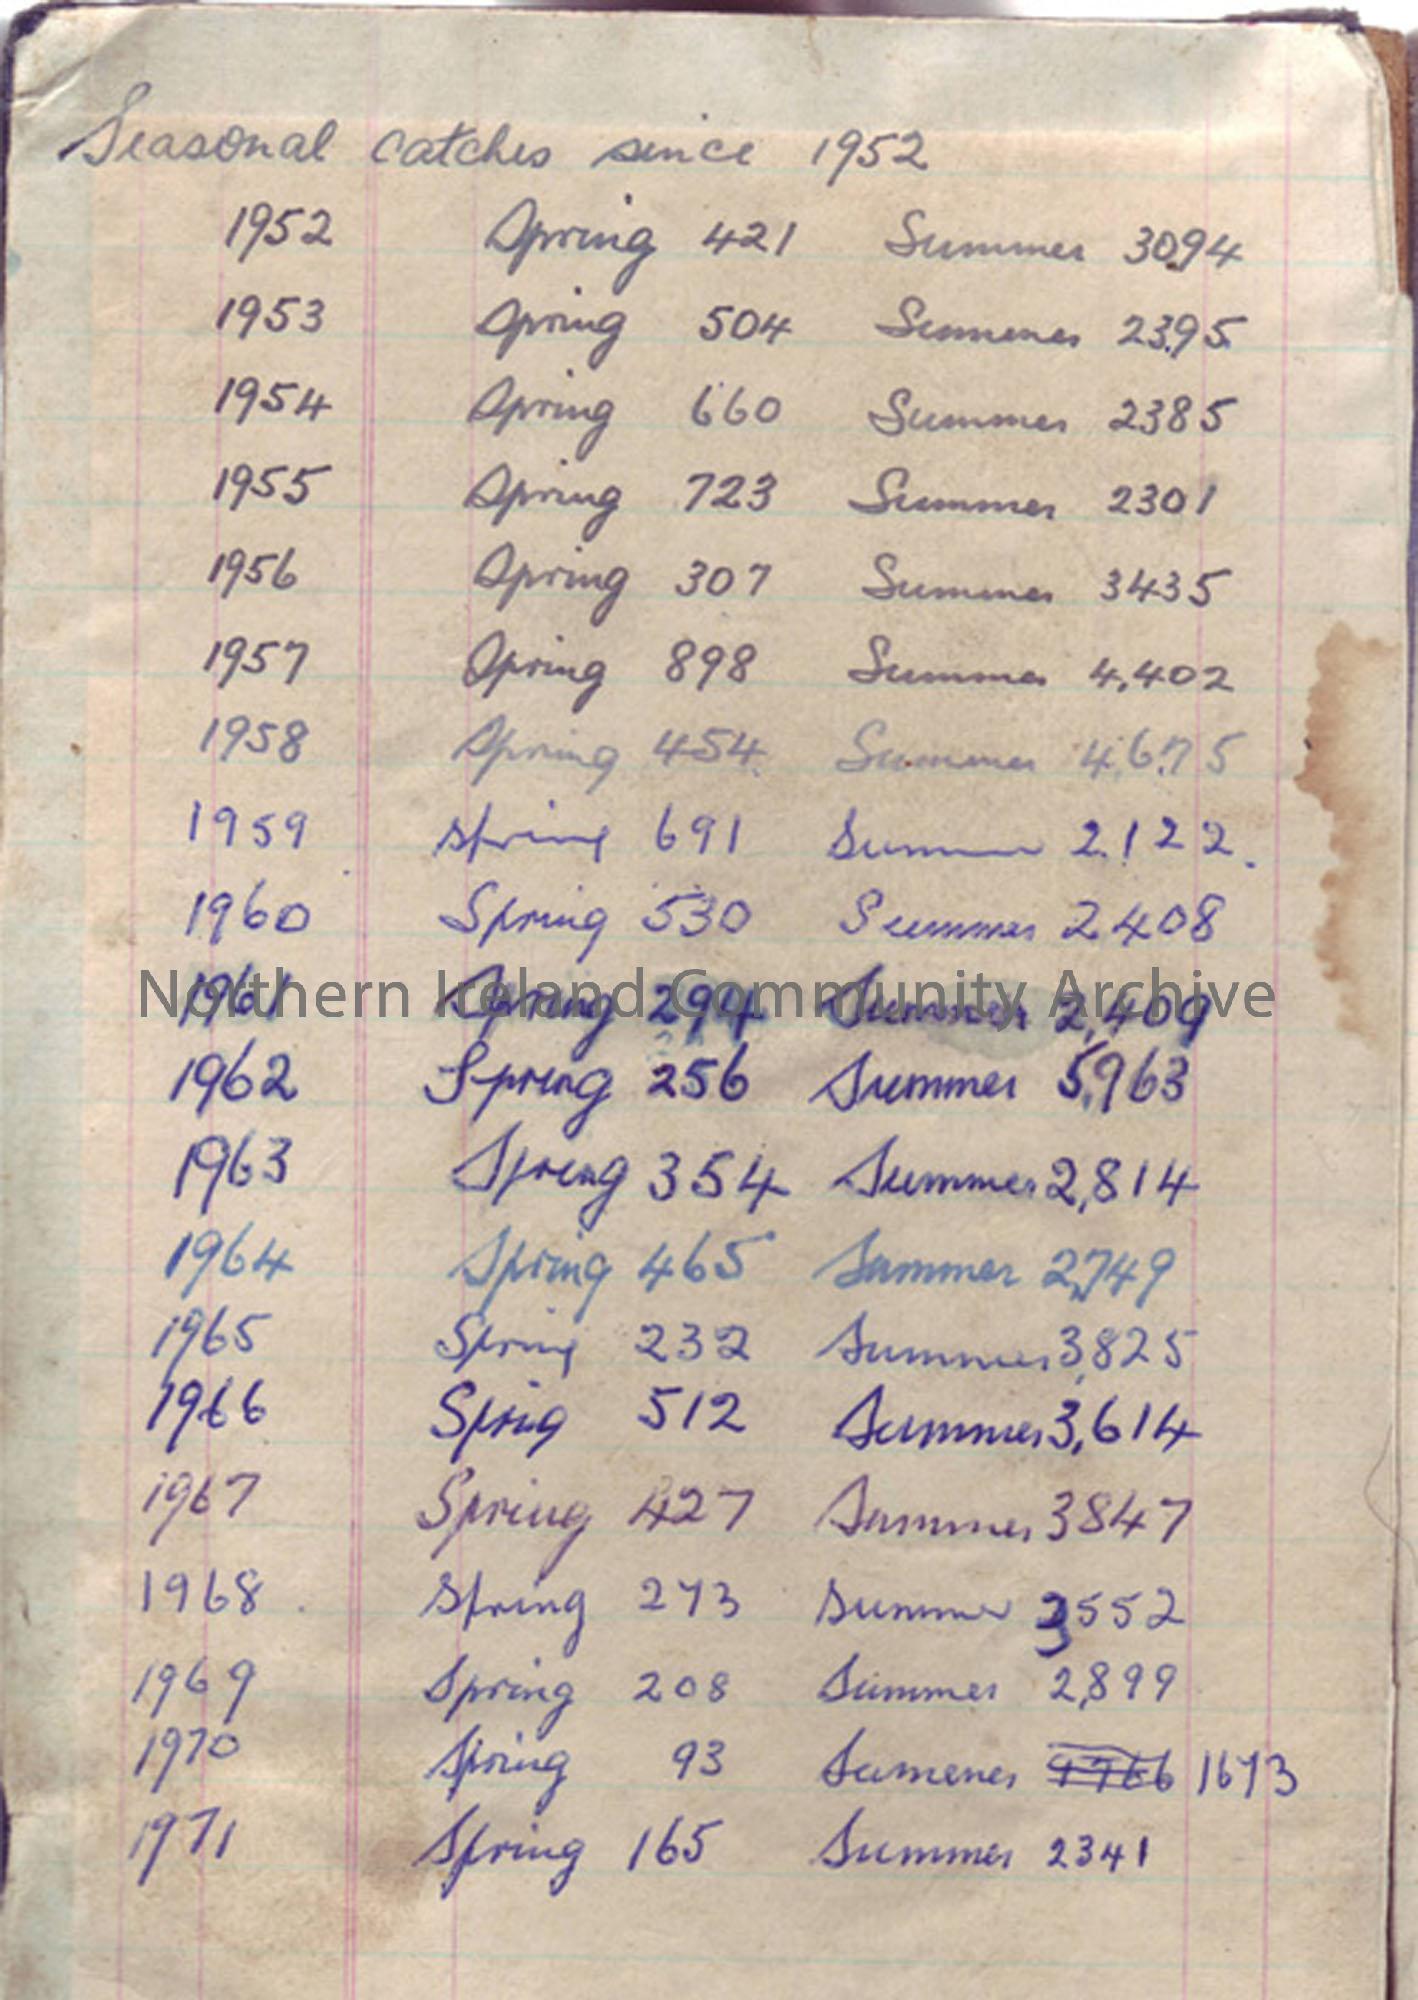 Seasonal catches since 1952
1952 Spring 421 Summer 3094
1953 Spring 504 Summer 2395
1954 Spring 660 Summer 2385
1955 Spring 723 Summer 2301
1956 Spring 307 Summer 3435
1957 Spring 898 Summer 4,402
1958 Spring 454 Summer 4,675
1959 Spring 691 Summer 2,122.
1960 Spring 530 Summer 2408
1961 Spring 294 Summer 2,409
Northern Ireland Community Archive
1962 Spring 256 Summer 5,963
1963 Spring 354 Summer 2,814
1964 Spring 465 Summer 2,749
1965 Spring 232 Summer 3,825
1966 Spring 512 Summer 3,614
1967 Spring 427 Summer 3847
1968 Spring 273 Summer 3552
1969 Spring 208 Summer 2,899
1970 Spring 93 Summer 1673
1971 Spring 165 Summer 2341